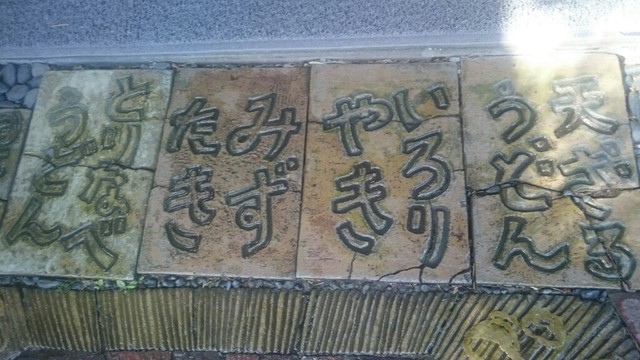 天ざる
うどん
いろり
やき
みず
たき
とりなべ
うどん